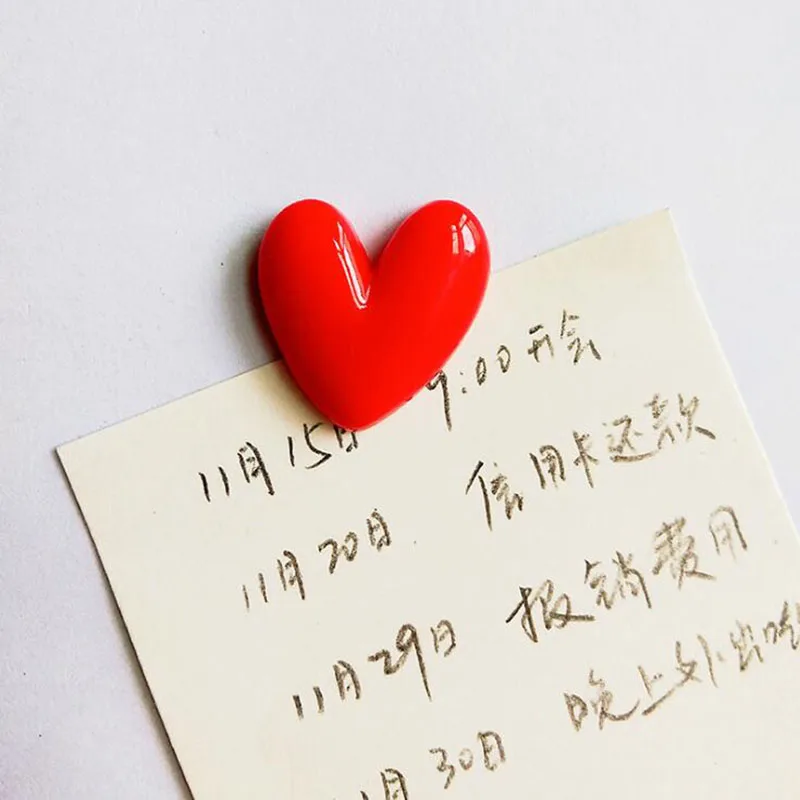 11月15日 9:00 开会
11月20日 信用卡还款
11月29日 报销费用
1月30日 晚上外出